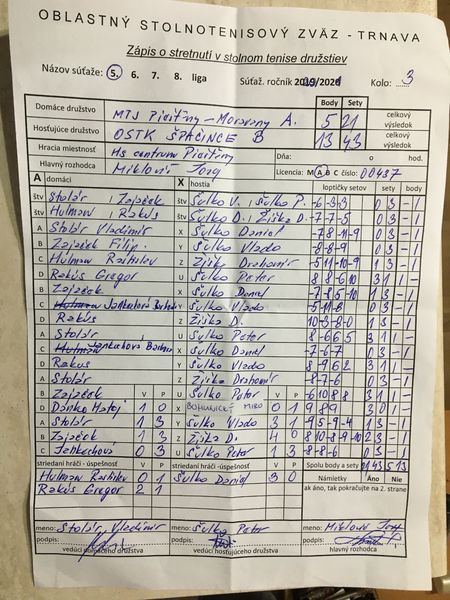 OBLASTNÝ STOLNOTENISOVÝ ZVÄZ - TRNAVA
Zápis o stretnutí v stolnom tenise družstiev
Názov súťaže: 5. 6. 7. 8. liga Súťaž. ročník Kolo: 3
Body Sety
Domáce družstvo MTJ Piešťany - Moravany A. 5 21 celkový výsledok
Hosťujúce družstvo OSTK ŠPAČINCE B 13 43 celkový výsledok
Hracia miestnosť Hs centrum Piešťany Dňa: o hod.
Hlavný rozhodca Miklovič Licencia: M A B C číslo: 00437
A domáci X hostia loptičky setov sety body
štv Stolár / Zajaček štv Šulko V. / Šulko P. -6-3-3 0 3 - 1
štv Hulman / Rakús štv Šulko D. / Žiška D. -7-7-5 0 3 - 1
A Stolár Vladimír X Šulko Daniel -7 8 -11 -9 1 3 - 1
B Zajaček Filip. Y Šulko Vlado -8-8-9 0 3 - 1
C Hulman Rastislav Z Žiška Drahomír 1 3 - 1
D Rakús Gregor U Šulko Peter 8 8 -6 10 3 1 1 -
B Zajaček X Šulko Daniel -7 8 -5 -10 1 3 - 1
C Y Šulko Vlado -5 -11 -8 0 3 - 1
D Rakús Z Žiška D. 10 -3 -8 -0 1 3 - 1
A Stolár U Šulko Peter 8 -6 6 5 3 1 1 -
C X Šulko Daniel -7-6-7 0 3 - 1
D Rakus Y Šulko Vlado 8 -9 6 2 3 1 1 -
A Stolár Z Žiška Drahomír -8-7-6 0 3 - 1
B Zajaček V P U Šulko Peter V P -6 10 8 8 3 1 1 -
D Danko Matej 1 0 X BOHUNICKÝ MIRO 0 1 9 8 9 3 0 1 -
A Stolár 1 3 Y Šulko Vlado 3 1 1 3 - 1
B Zajaček 1 3 Z Žiška D. 4 0 2 3 - 1
C 0 3 U Šulko Peter 1 3 -8-8-6 0 3 - 1
striedaní hráči - úspešnosť V P striedaní hráči - úspešnosť V P Spolu body a sety 21 43 5 13
Hulman Rastislav 0 1 Šulko Daniel 3 0 Námietky Áno Nie
Rakús Gregor 2 1 ak áno, tak pokračujte na 2. strane
meno: Stolár Vladimír meno: Šulko Peter meno: Miklovič
podpis: podpis: podpis:
vedúci domáceho družstva vedúci hosťujúceho družstva hlavný rozhodca